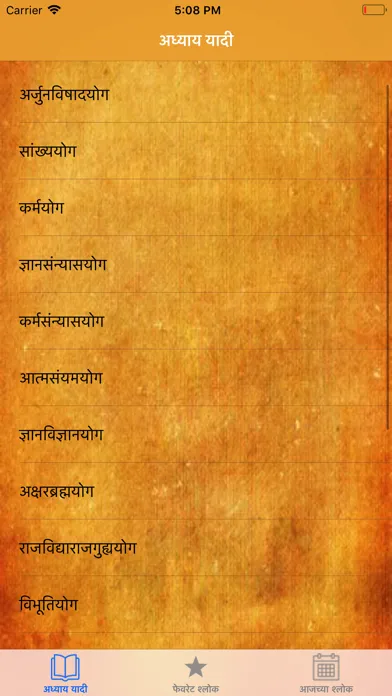 Carrier 5:08 PM
अध्याय यादी
अर्जुनविषादयोग
सांख्ययोग
कर्मयोग
ज्ञानसंन्यासयोग
कर्मसंन्यासयोग
आत्मसंयमयोग
ज्ञानविज्ञानयोग
अक्षरब्रह्मयोग
राजविद्याराजगुह्ययोग
विभूतियोग
अध्याय यादी फेवरेट श्लोक आजच्या श्लोक